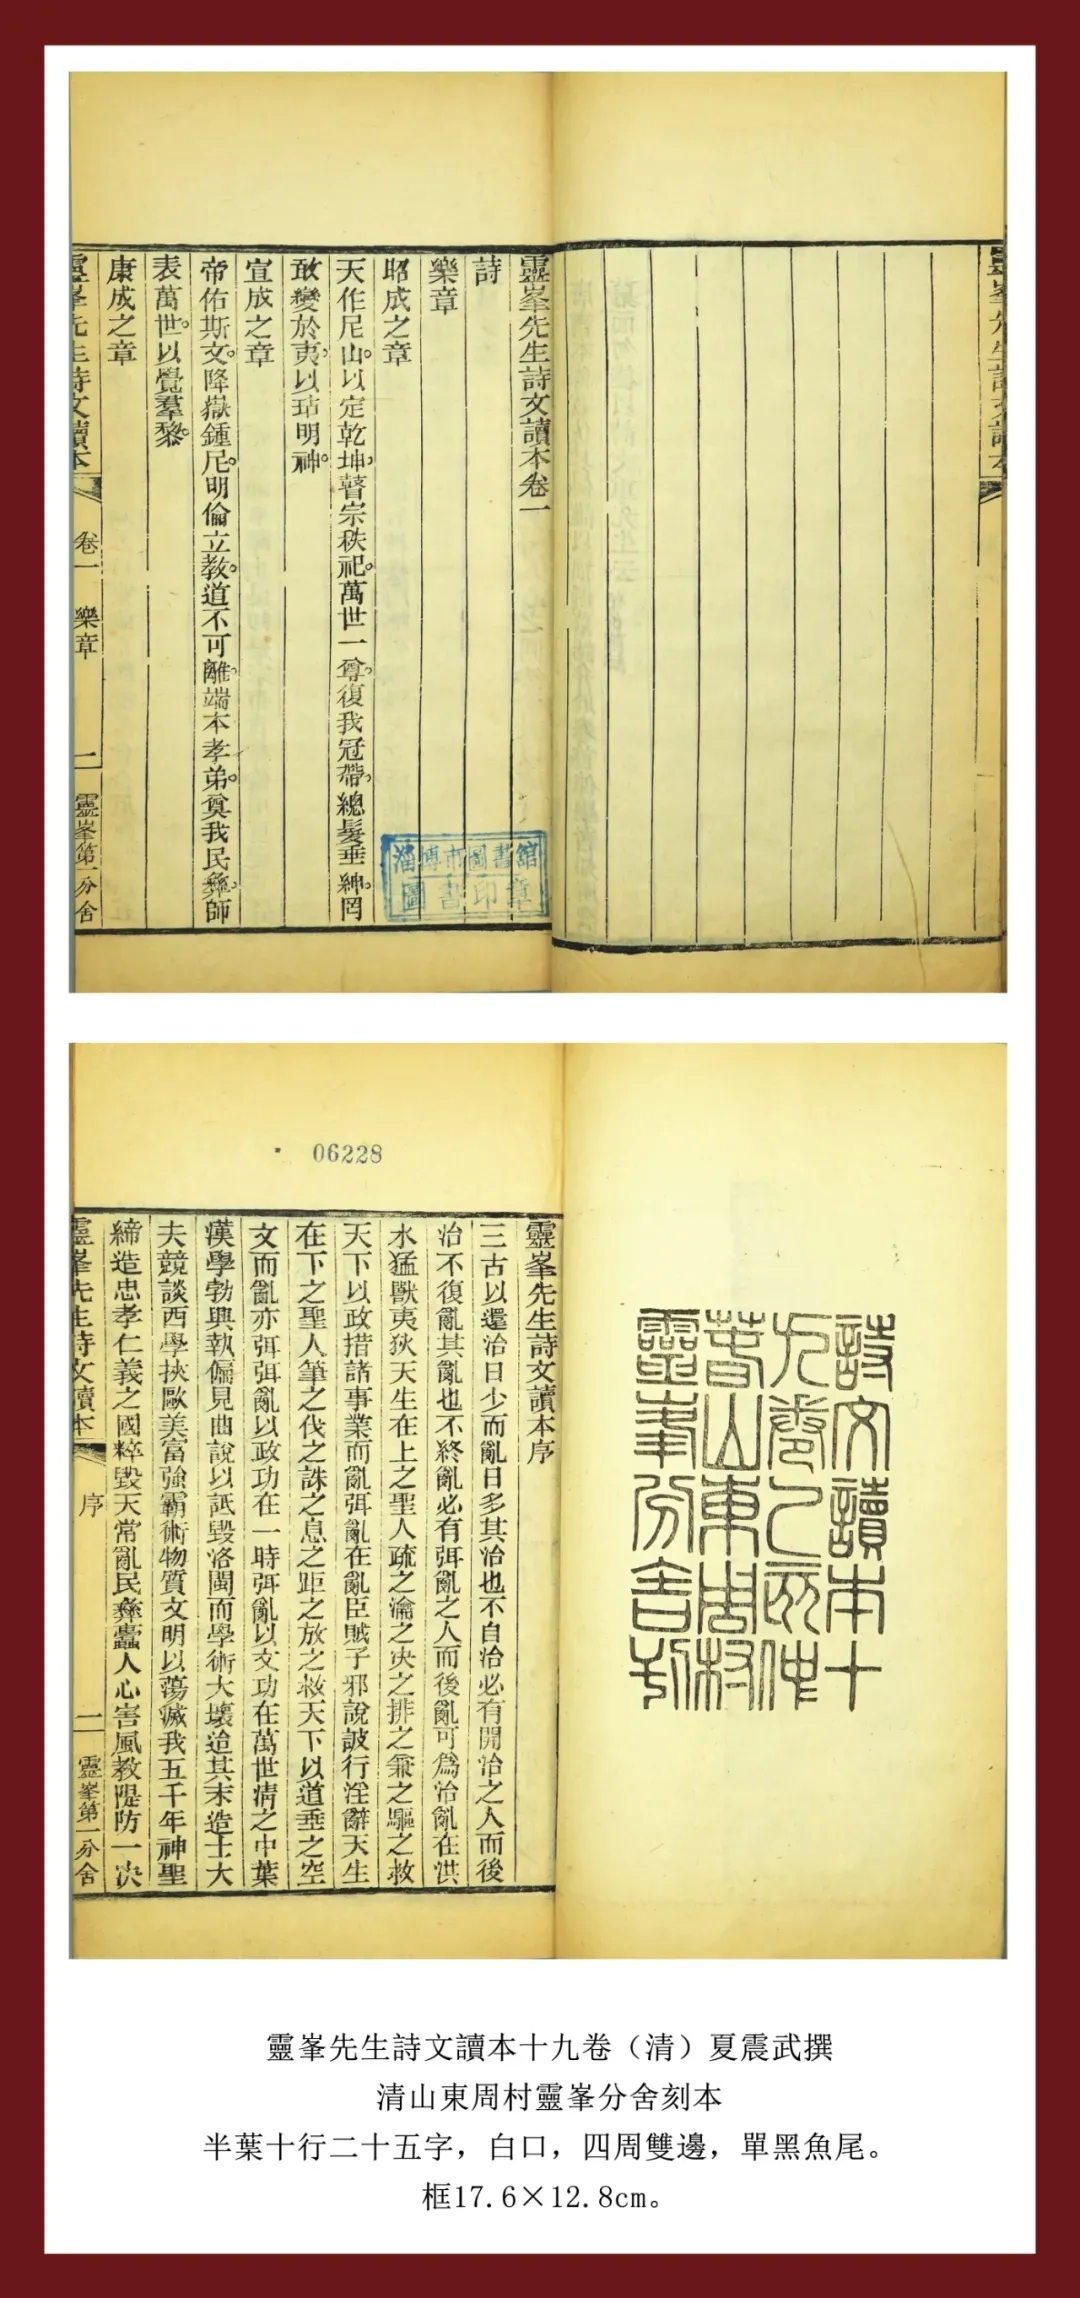 靈峯先生詩文讀本
靈峯先生詩文讀本卷一
詩
樂章
昭成之章
天作尼山。以定乾坤。瞽宗秩祀。萬世一尊。復我冠帶。總髮垂紳。罔
敢變於夷。以玷明神。
宣成之章
帝佑斯文。降嶽鍾尼。明倫立教。道不可離。端本孝弟。奠我民彝。師
表萬世。以覺羣黎。
康成之章
靈峯先生詩文讀本 卷一 樂章 一 靈峯第一分舍
淄博市圖書館
圖書印章
詩文讀本十
九卷乙亥仲
春山東周村
靈峯分舍刊
06228
靈峯先生詩文讀本序
三古以還治日少而亂日多其治也不自治必有開治之人而後
治不復亂其亂也不終亂必有弭亂之人而後亂可爲治亂在洪
水猛獸夷狄天生在上之聖人疏之瀹之決之排之兼之驅之救
天下以政措諸事業而亂弭亂在亂臣賊子邪說詖行淫辭天生
在下之聖人筆之伐之誅之息之距之放之救天下以道垂之空
文而亂亦弭弭亂以政功在一時弭亂以文功在萬世清之中葉
漢學勃興執偏見曲說以詆毀洛閩而學術大壞迨其末造士大
夫競談西學挾歐美富強霸術物質文明以蕩滅我五千年神聖
締造忠孝仁義之國粹毀天常亂民彝蠹人心害風教隄防一決
靈峯先生詩文讀本 序 一 靈峯第一分舍
靈峯先生詩文讀本十九卷（清）夏震武撰
清山東周村靈峯分舍刻本
半葉十行二十五字，白口，四周雙邊，單黑魚尾。
框17.6×12.8cm。